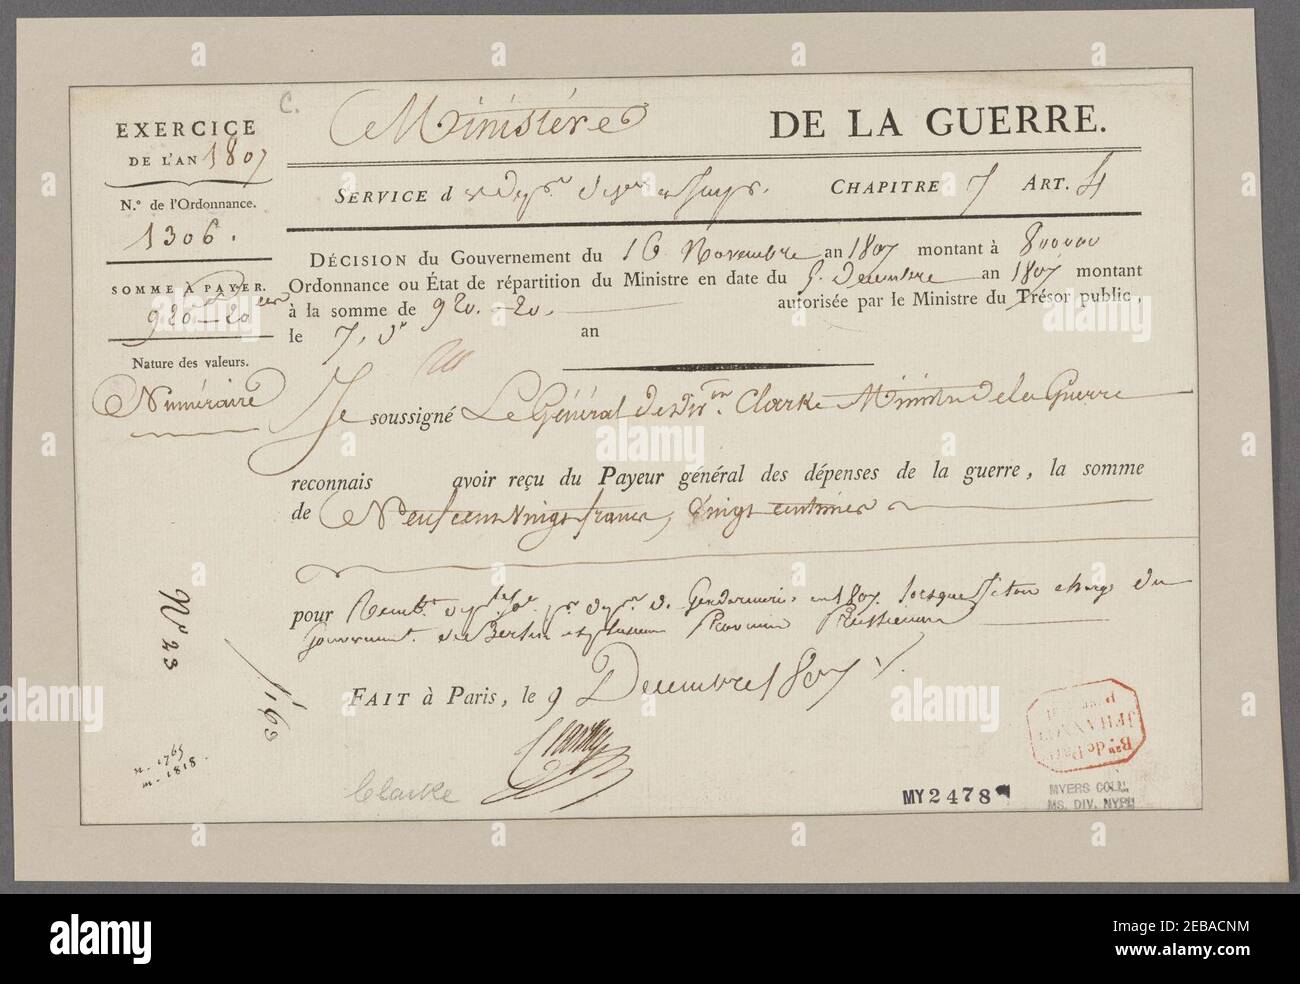 C.
Ministère DE LA GUERRE.
EXERCICE
DE L'AN 1807
SERVICE d CHAPITRE 7 ART. 4
N.º de l'Ordonnance.
1306.
DÉCISION du Gouvernement du 16 Novembre an 1807 montant à 800000
Ordonnance ou État de répartition du Ministre en date du 5. Decembre an 1807 montant
à la somme de 920.-20. autorisée par le Ministre du Trésor public,
le 7. Xr an
SOMME À PAYER.
920-20
Nature des valeurs.
Numéraire
Je soussigné Le Général de Divon. Clarke Ministre de la Guerre
reconnais avoir reçu du Payeur général des dépenses de la guerre, la somme
de Neuf cent Vingt francs, Vingt centimes
pour Gendarmerie en 1807. lorsque chargé du
Gouvernement de Berlin Prussienne
FAIT à Paris, le 9 Decembre 1807
Clarke
Clarke
No 23
1163
n. 1765
m. 1818.
Bon de Pon
JEHANNOT
MY 2478
MYERS COLL.
MS. DIV. NYPL
alamy
Image ID: 2EBACNM
www.alamy.com